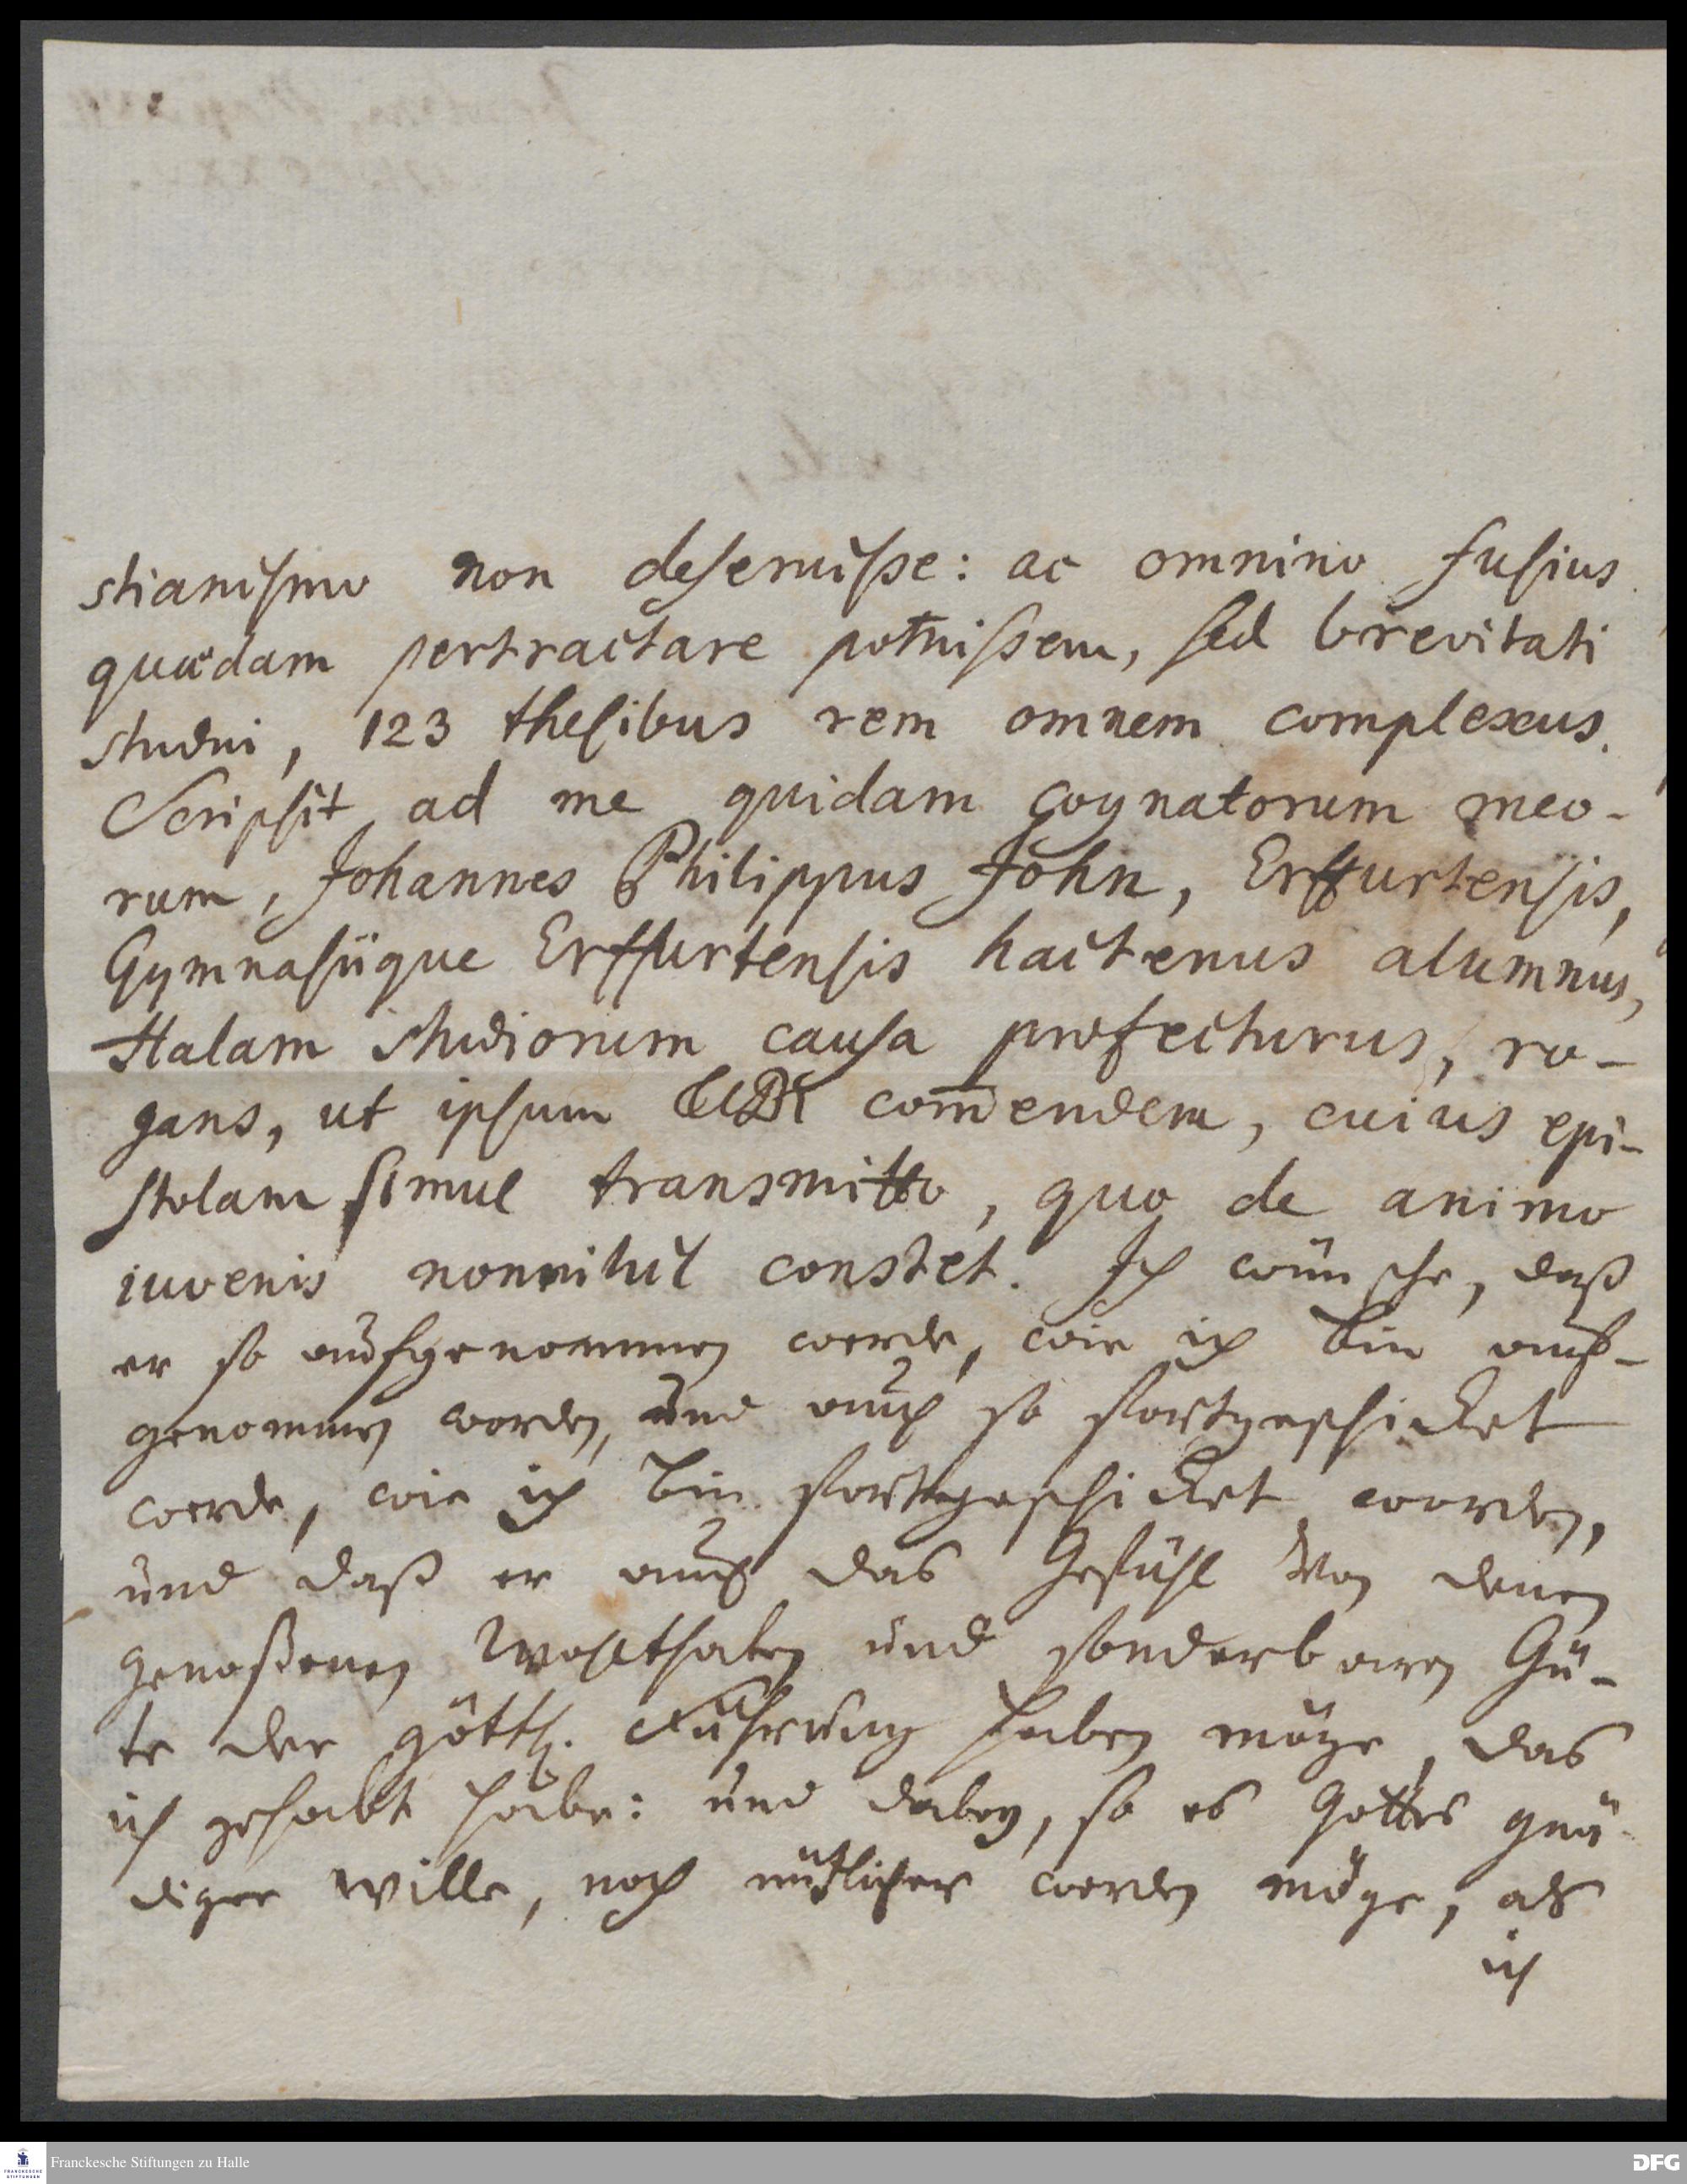 stianiſmo non deſeruiſſe: ac omnino fuſius
quædam pertractare potuiſſem, ſed brevitati
studui, 123 theſibus rem omnem complexus.
Scripſit ad me quidam cognatorum meo-
rum, Johannes Philippus John, Erffurtenſis,
Gymnaſiique Erffurtenſis hactenus alumnus,
Halam studiorum cauſa profecturus, ro-
gans, ut ipſum TIBI com̄endem, cuius epi-
ſtolam ſimul transmitto, quo de animo
iuvenis nonnihil constet. Ich wünsche, daß
er so aufgenommen werde, wie ich bin auf-
genommen worden, und auch so fortgeschicket
werde, wie ich bin fortgeschicket worden,
und daß er auch das Gefühl von denen
genoßenen Wohlthaten und sonderbaren Gü-
te der göttl. Führung haben möge, das
ich gehabt habe: und dabey, so es Gottes gnä-
diger Wille, noch nützlicher werden möge, als
ich
Franckesche Stiftungen zu Halle
FRANCKESCHE
STIFTUNGEN
DFG